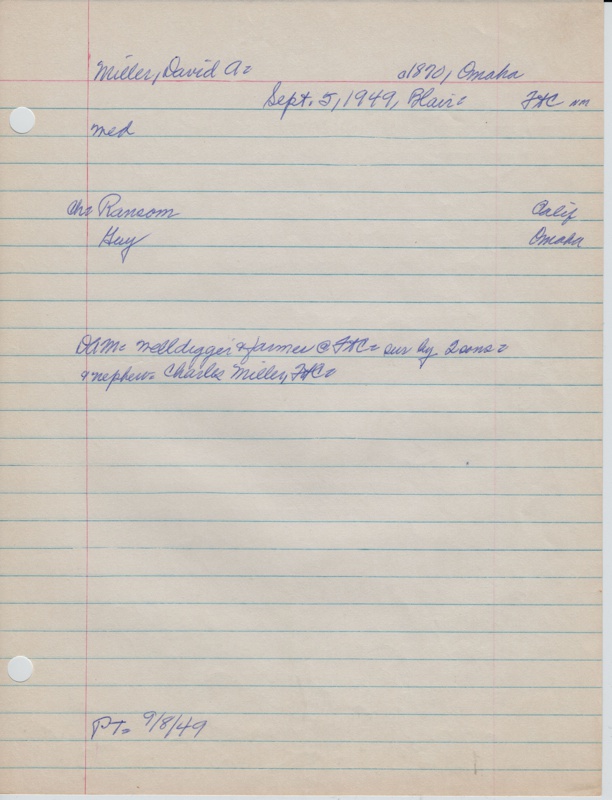 Miller, David A= c1870, Omaha
Sept. 5, 1949, Blair= FtC NM
Med
Ch= Ransom Calif
Guy Omaha
DAM= welldigger & farmer @ FtC= sur by 2 sons=
& nephew= Charles Miller, FtC=
PT= 9/8/49